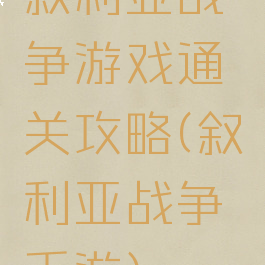 叙利亚战
争游戏通
关攻略(叙
利亚战争
手游)